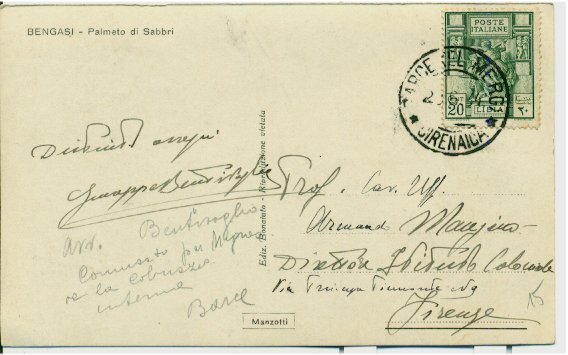 BENGASI - Palmeto di Sabbri
POSTE
ITALIANE
20
LIBIA
٢٠
BARCE (EL MERG)
CIRENAICA
Distinti ossequi
Giuseppe Bentivoglio
Avv. Bentivoglio
Commiss per
la
interna
Barce
Ediz. Bonatato - Riproduzione vietata
Manzotti
Prof. Cav. Uff.
Armando Maugini
Direttore Istituto Coloniale
Via
Firenze